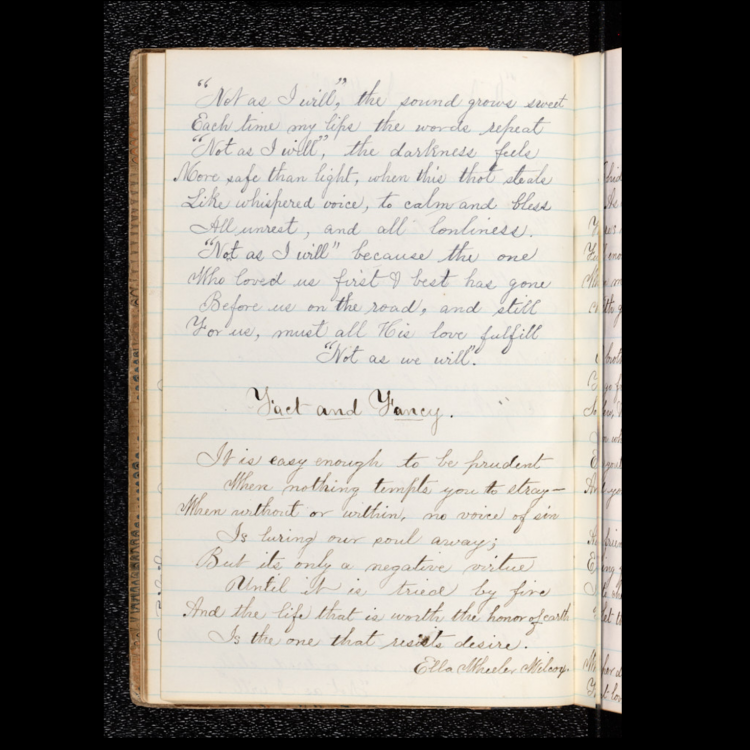 "Not as I will", the sound grows sweet
Each time my lips the words repeat
"Not as I will", the darkness feels
More safe than light, when this thot steals
Like whispered voice, to calm and bless
All unrest, and all lonliness.
"Not as I will" because the one
Who loved us first & best has gone
Before us on the road, and still
For us, must all His love fulfill
"Not as we will".
Fact and Fancy.
It is easy enough to be prudent
When nothing tempts you to stray—
When without or within, no voice of sin
Is luring our soul away;
But its only a negative virtue
Until it is tried by fire
And the life that is worth the honor of earth
Is the one that resists desire.
Ella Wheeler Wilcox.